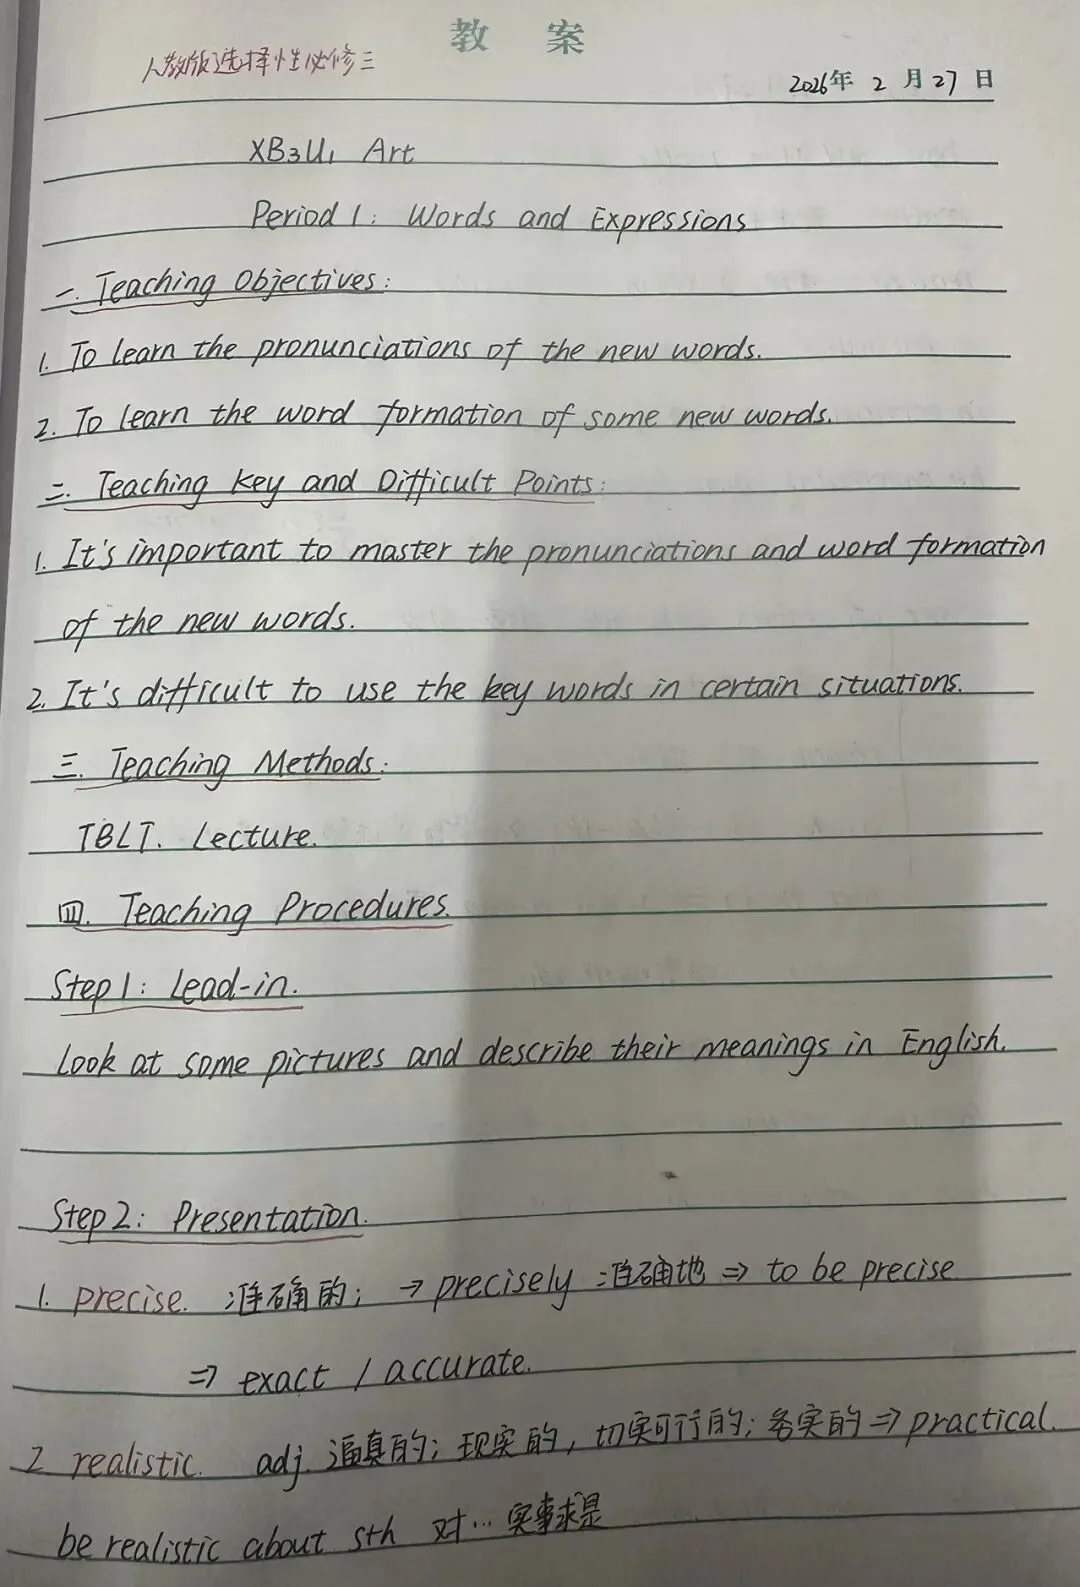 教 案
人教版选择性必修三
2026年 2 月 27 日
XB3U1 Art
Period 1: Words and Expressions
一. Teaching Objectives:
1. To learn the pronunciations of the new words.
2. To learn the word formation of some new words.
二. Teaching key and Difficult Points:
1. It's important to master the pronunciations and word formation
of the new words.
2. It's difficult to use the key words in certain situations.
三. Teaching Methods:
TBLT. Lecture.
四. Teaching Procedures.
Step 1: Lead-in.
Look at some pictures and describe their meanings in English.
Step 2: Presentation.
1. precise. 准确的; → precisely 准确地 ⇒ to be precise
⇒ exact / accurate.
2 realistic. adj. 逼真的; 现实的, 切实可行的; 务实的 ⇒ practical.
be realistic about sth 对… 实事求是